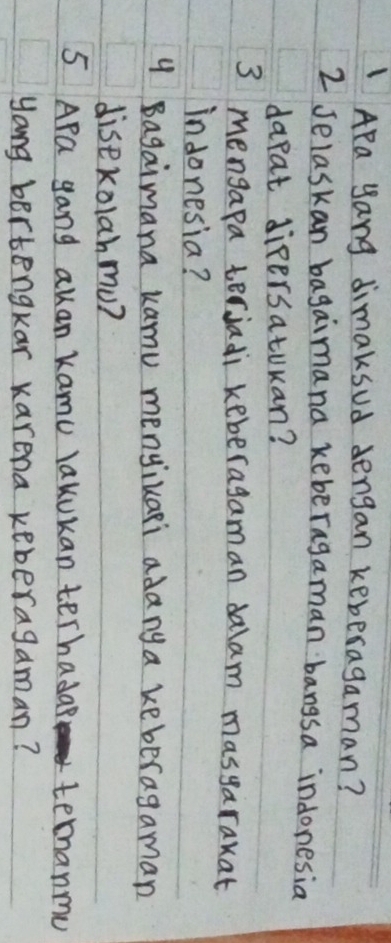 1 Apa yang dimaksud dengan keberagaman?
2 Jelaskan bagaimana keberagaman bangsa indonesia
dapat dipersatukan?
3 mengapa terjadi keberagaman dalam masyarakat
indonesia?
4 Bagaimana kamu menyikapi adanya keberagaman
disekolahmu?
5 Apa yang akan kamu lakukan terhadap temanmu
yang bertengkar karena keberagaman?